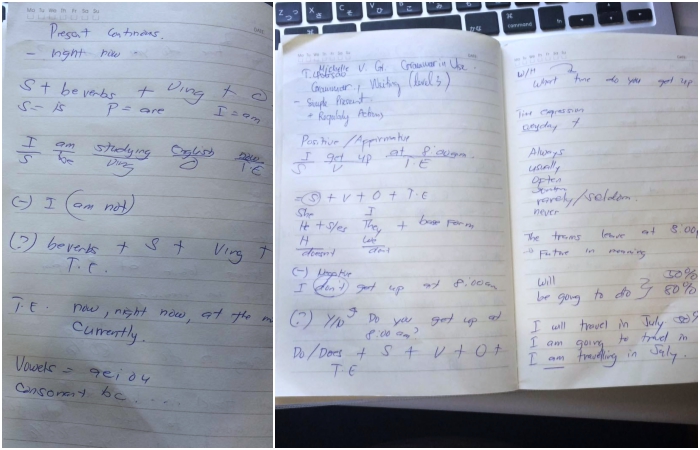 Present Continous.
- right now
S + be verbs + Ving + O
S = is P = are I = am
I am studying English now
S be Ving O T.E
(-) I (am not)
(?) be verbs + S + Ving +
T.E.
T.E. now, right now, at the m
Currently.
Vowels = a e i o u
Consonant b c . . . .
Michelle V. G. Grammar in Use
Grammar, Writing (level 3)
- Simple Present
+ Regularly Actions
Positive / Appirmative
I get up at 8:00am.
S V T.E
= S + V + O + T.E
She I
It + s/es They + base form
H We
doesn't don't
(-) Negative
I don't get up at 8.00am
(?) Y/N Do you get up at
8:00 am?
Do/Does + S + V + O +
T.E
W/H
What time do you get up
Time expression
Everyday
Always
usually
often
rarely/seldom
never
The trains leave at 8:00
→ Future in meaning
will 50%
be going to do } 80%
I will travel in July 50%
I am going to travel in
I am travelling in July.